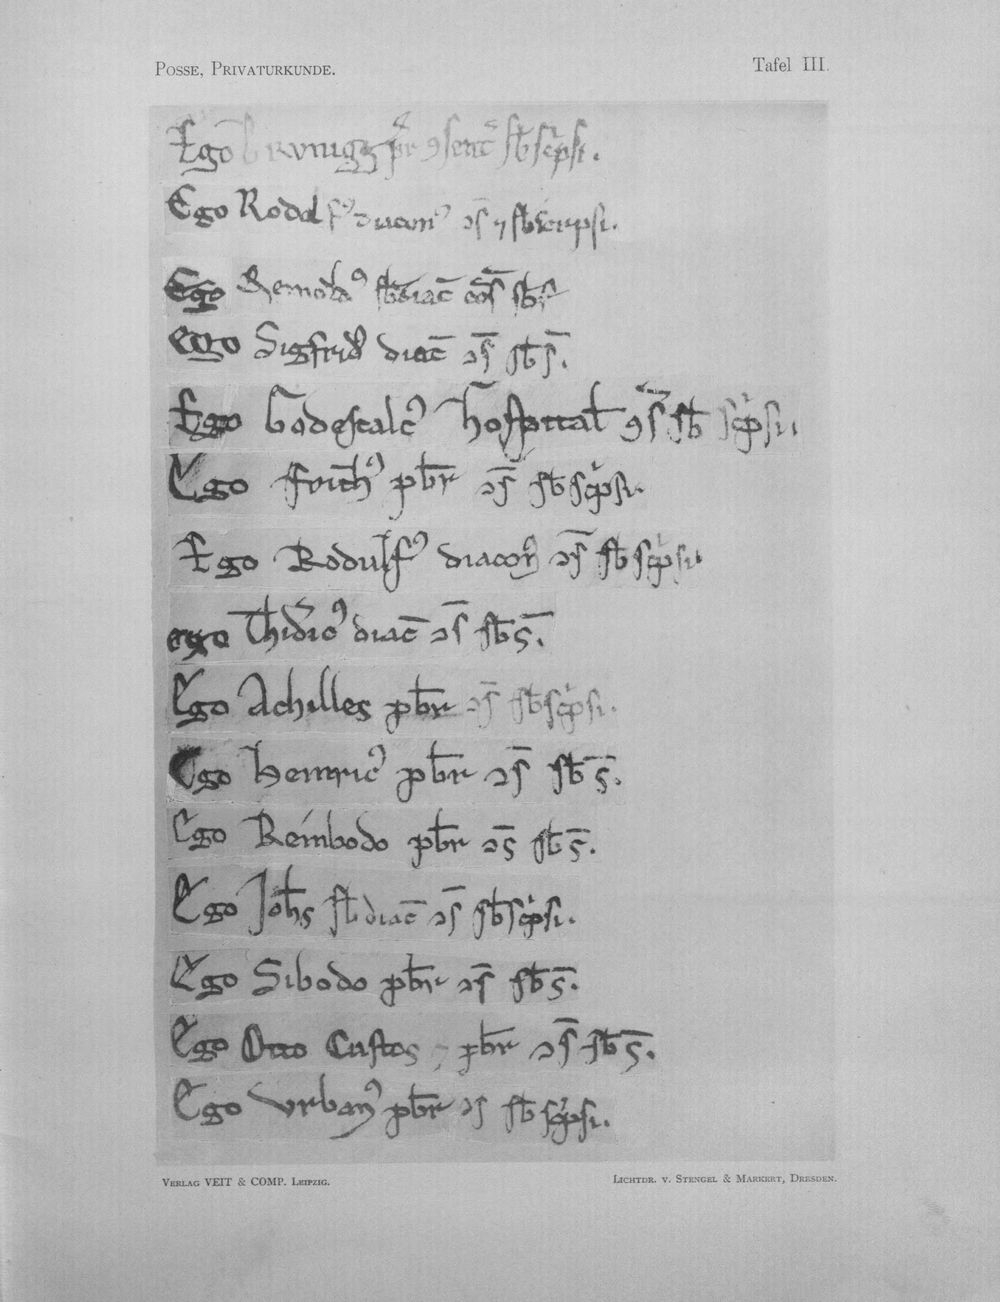 POSSE, PRIVATURKUNDE.
Tafel III.
Ego p̄r ꝯsenc̄ sb̄sc̄psi.
Ego Rodolfꝰ diaconꝰ ɔs̄ ⁊ sb̄scripsi.
Ego sb̄diac̄ cōs̄ sb̄s̄
ego Sigfrid diac̄ ɔs̄ sb̄s̄.
Ego Godescalcꝰ hospital̄ ꝯs̄ sb̄ sc̄psi.
Ego pb̄r ɔs̄ sb̄sc̄psi.
Ego Rodulfꝰ diacon̄ ɔs̄ sb̄sc̄psi.
ego Thidicꝰ diac̄ ɔs̄ sb̄s̄.
Ego Achilles pb̄r ɔs̄ sb̄sc̄psi.
Ego Heinricꝰ pb̄r ɔs̄ sb̄s̄.
Ego Reinbodo pb̄r ɔs̄ sb̄s̄.
Ego Joh̄s sb̄diac̄ ɔs̄ sb̄sc̄psi.
Ego Sibodo pb̄r ɔs̄ sb̄s̄.
Ego Otto Custos ⁊ pb̄r ɔs̄ sb̄s̄.
Ego Vrbanꝰ pb̄r ɔs sb̄sc̄psi.
VERLAG VEIT & COMP. LEIPZIG.
LICHTDR. V. STENGEL & MARKERT, DRESDEN.